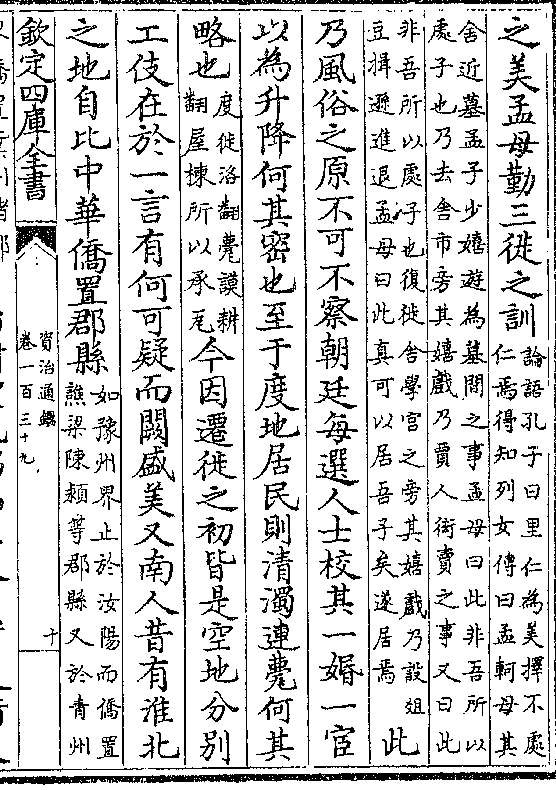 之美孟母勤三徙之訓
論語孔子曰里仁為美擇不處
仁焉得知列女傳曰孟軻母其
舍近墓孟子少嬉遊為墓間之事孟母曰此非吾所以
處子也乃去舍市旁其嬉戲乃賈人衒賣之事又曰此
非吾所以處子也復徙舍學宫之旁其嬉戲乃設俎
豆揖遜進退孟母曰此真可以居吾子矣遂居焉
此
乃風俗之原不可不察朝廷每選人士校其一婚一宦
以為升降何其密也至于度地居民則清濁連甍何其
略也
度徒洛翻甍謨耕
翻屋棟所以承瓦
今因遷徙之初皆是空地分別
工伎在於一言有何可疑而闕盛美又南人昔有淮北
之地自比中華僑置郡縣
如豫州界止於汝陽而僑置
譙梁陳潁等郡縣又於青州
欽定四庫全書
資治通鑑
卷一百三十九
十